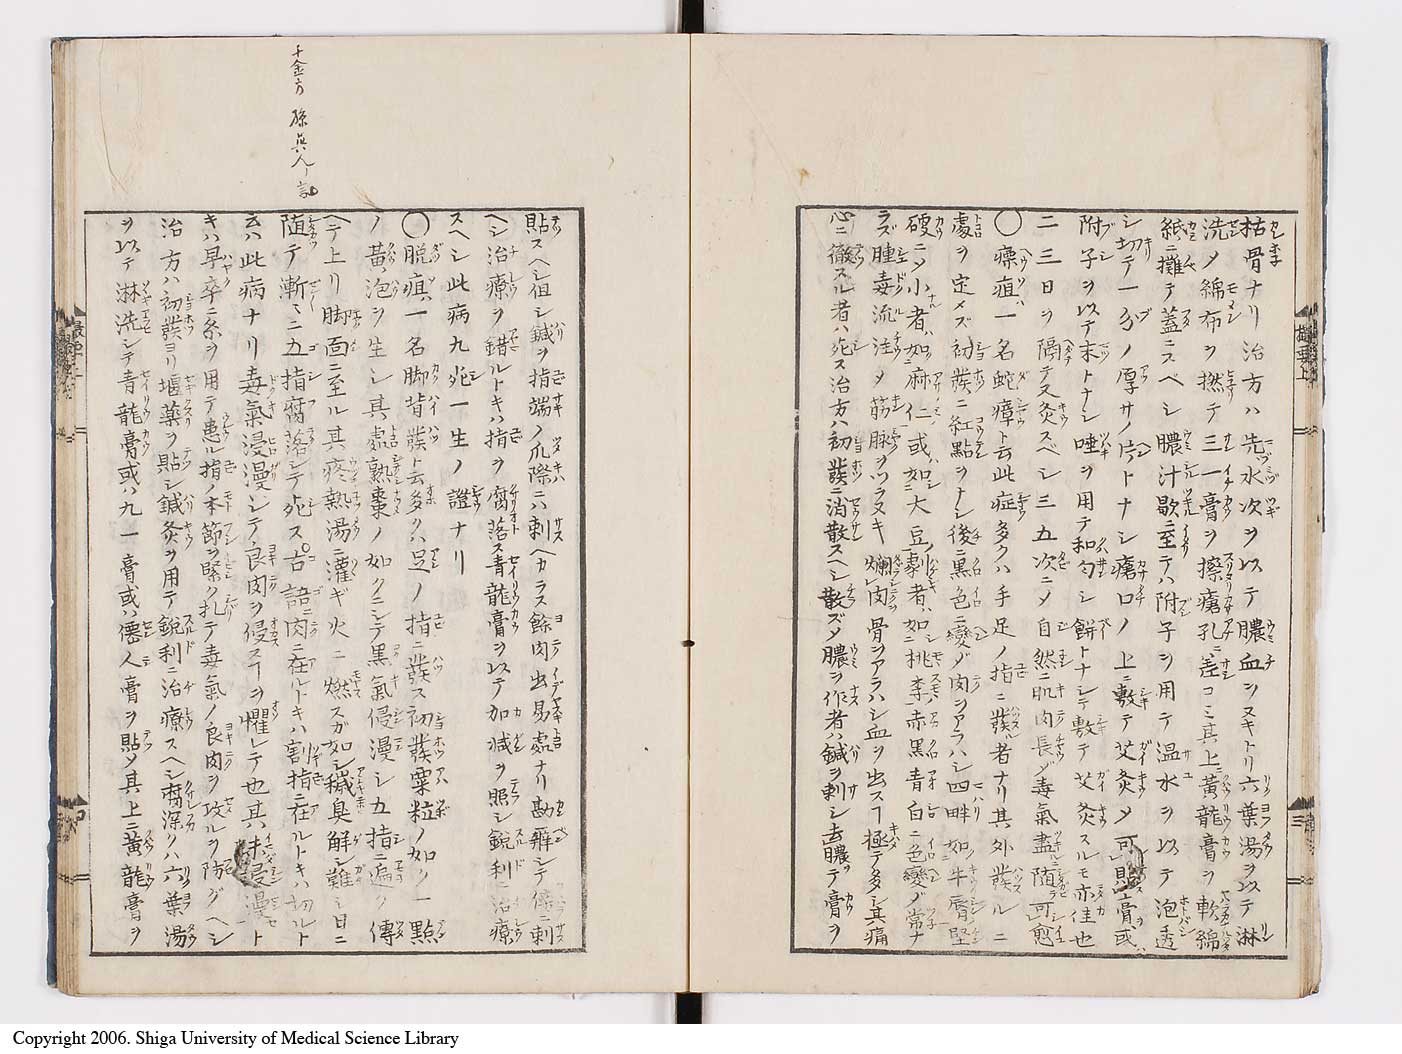 枯骨ナリ治方ハ先水次ヲ以テ膿血ヲヌキトリ六葉湯ヲ以テ淋
洗〆綿布ヲ撚テ三一膏ヲ擦瘡孔ニ差コミ其上ニ黄龍膏ヲ軟綿
紙ニ攤テ蓋ニスベシ膿汁歇ニ至テハ附子ヲ用テ温水ヲ以テ泡透
シ切テ一分ノ厚サノ片トナシ瘡口ノ上ニ敷テ艾灸〆可貼膏或
附子ヲ以テ末トナシ唾ヲ用テ和匀シ餅トナシテ敷テ艾灸スルモ亦佳也
二三日ヲ隔テ又灸スベシ三五次ニ〆自然ニ肌肉長ジ毒氣盡随テ可愈
〇瘭疽一名蛇瘴ト云此症多クハ手足ノ指ニ發者ナリ其外發ルニ
處ヲ定メズ初發ニ紅點ヲナシ後ニ黒色ニ變ジ肉ヲアラハシ四畔如牛唇堅
硬ニ〆小者ハ如麻仁或如大豆劇者ハ如桃李赤黒青白ニ色變ジ常ナ
ラズ腫毒流注〆筋脉ヲツラヌキ爛レ肉骨ヲアラハシ血ヲ出スヿ極テ多シ其痛
心ニ徹スル者ハ死ス治方ハ初發ニ消散スヘシ散ズ〆膿ヲ作者ハ鍼ヲ刺シ去膿テ膏ヲ
貼スヘシ但シ鍼ヲ指端ノ爪際ニハ刺ヘカラス餘肉出易處ナリ勘辨シテ
ヘシ治療ヲ錯ルトキハ指ヲ腐落ス青龍膏ヲ以テ加減ヲ照シ鋭利ニ治療
スヘシ此病九死一生ノ證ナリ
〇脱疽一名脚背發ト云多クハ足ノ指ニ發ス初發粟粒ノ如ク一點
ノ黄泡ヲ生シ其處熟棗ノ如クニシテ黒氣侵漫シ五指ニ遍ク傳
ヘテ上リ脚面ニ至ル其疼熱湯ニ灌ギ火ニ燃スガ如シ穢臭解シ難シ日ニ
随テ漸々ニ五指腐落シテ死ス古語ニ肉ニ在ルトキハ割指ニ在ルトキハ切ルト
云ハ此病ナリ毒氣浸漫シテ良肉ヲ侵スヿヲ懼レテ也其未浸漫ト
キハ早卒ニ糸ヲ用テ患ル指ノ本節ヲ緊ク扎テ毒氣ノ良肉ヲ攻ルヲ防グヘシ
治方ハ初發ヨリ堰薬ヲ貼シ鍼灸ヲ用テ鋭利ニ治療スヘシ腐深クハ六葉湯
ヲ以テ淋洗シテ青龍膏或ハ九一膏或ハ僊人膏ヲ貼〆其上ニ黄龍膏ヲ
千金方 孫真人ノ説
Copyright 2006. Shiga University of Medical Science Library